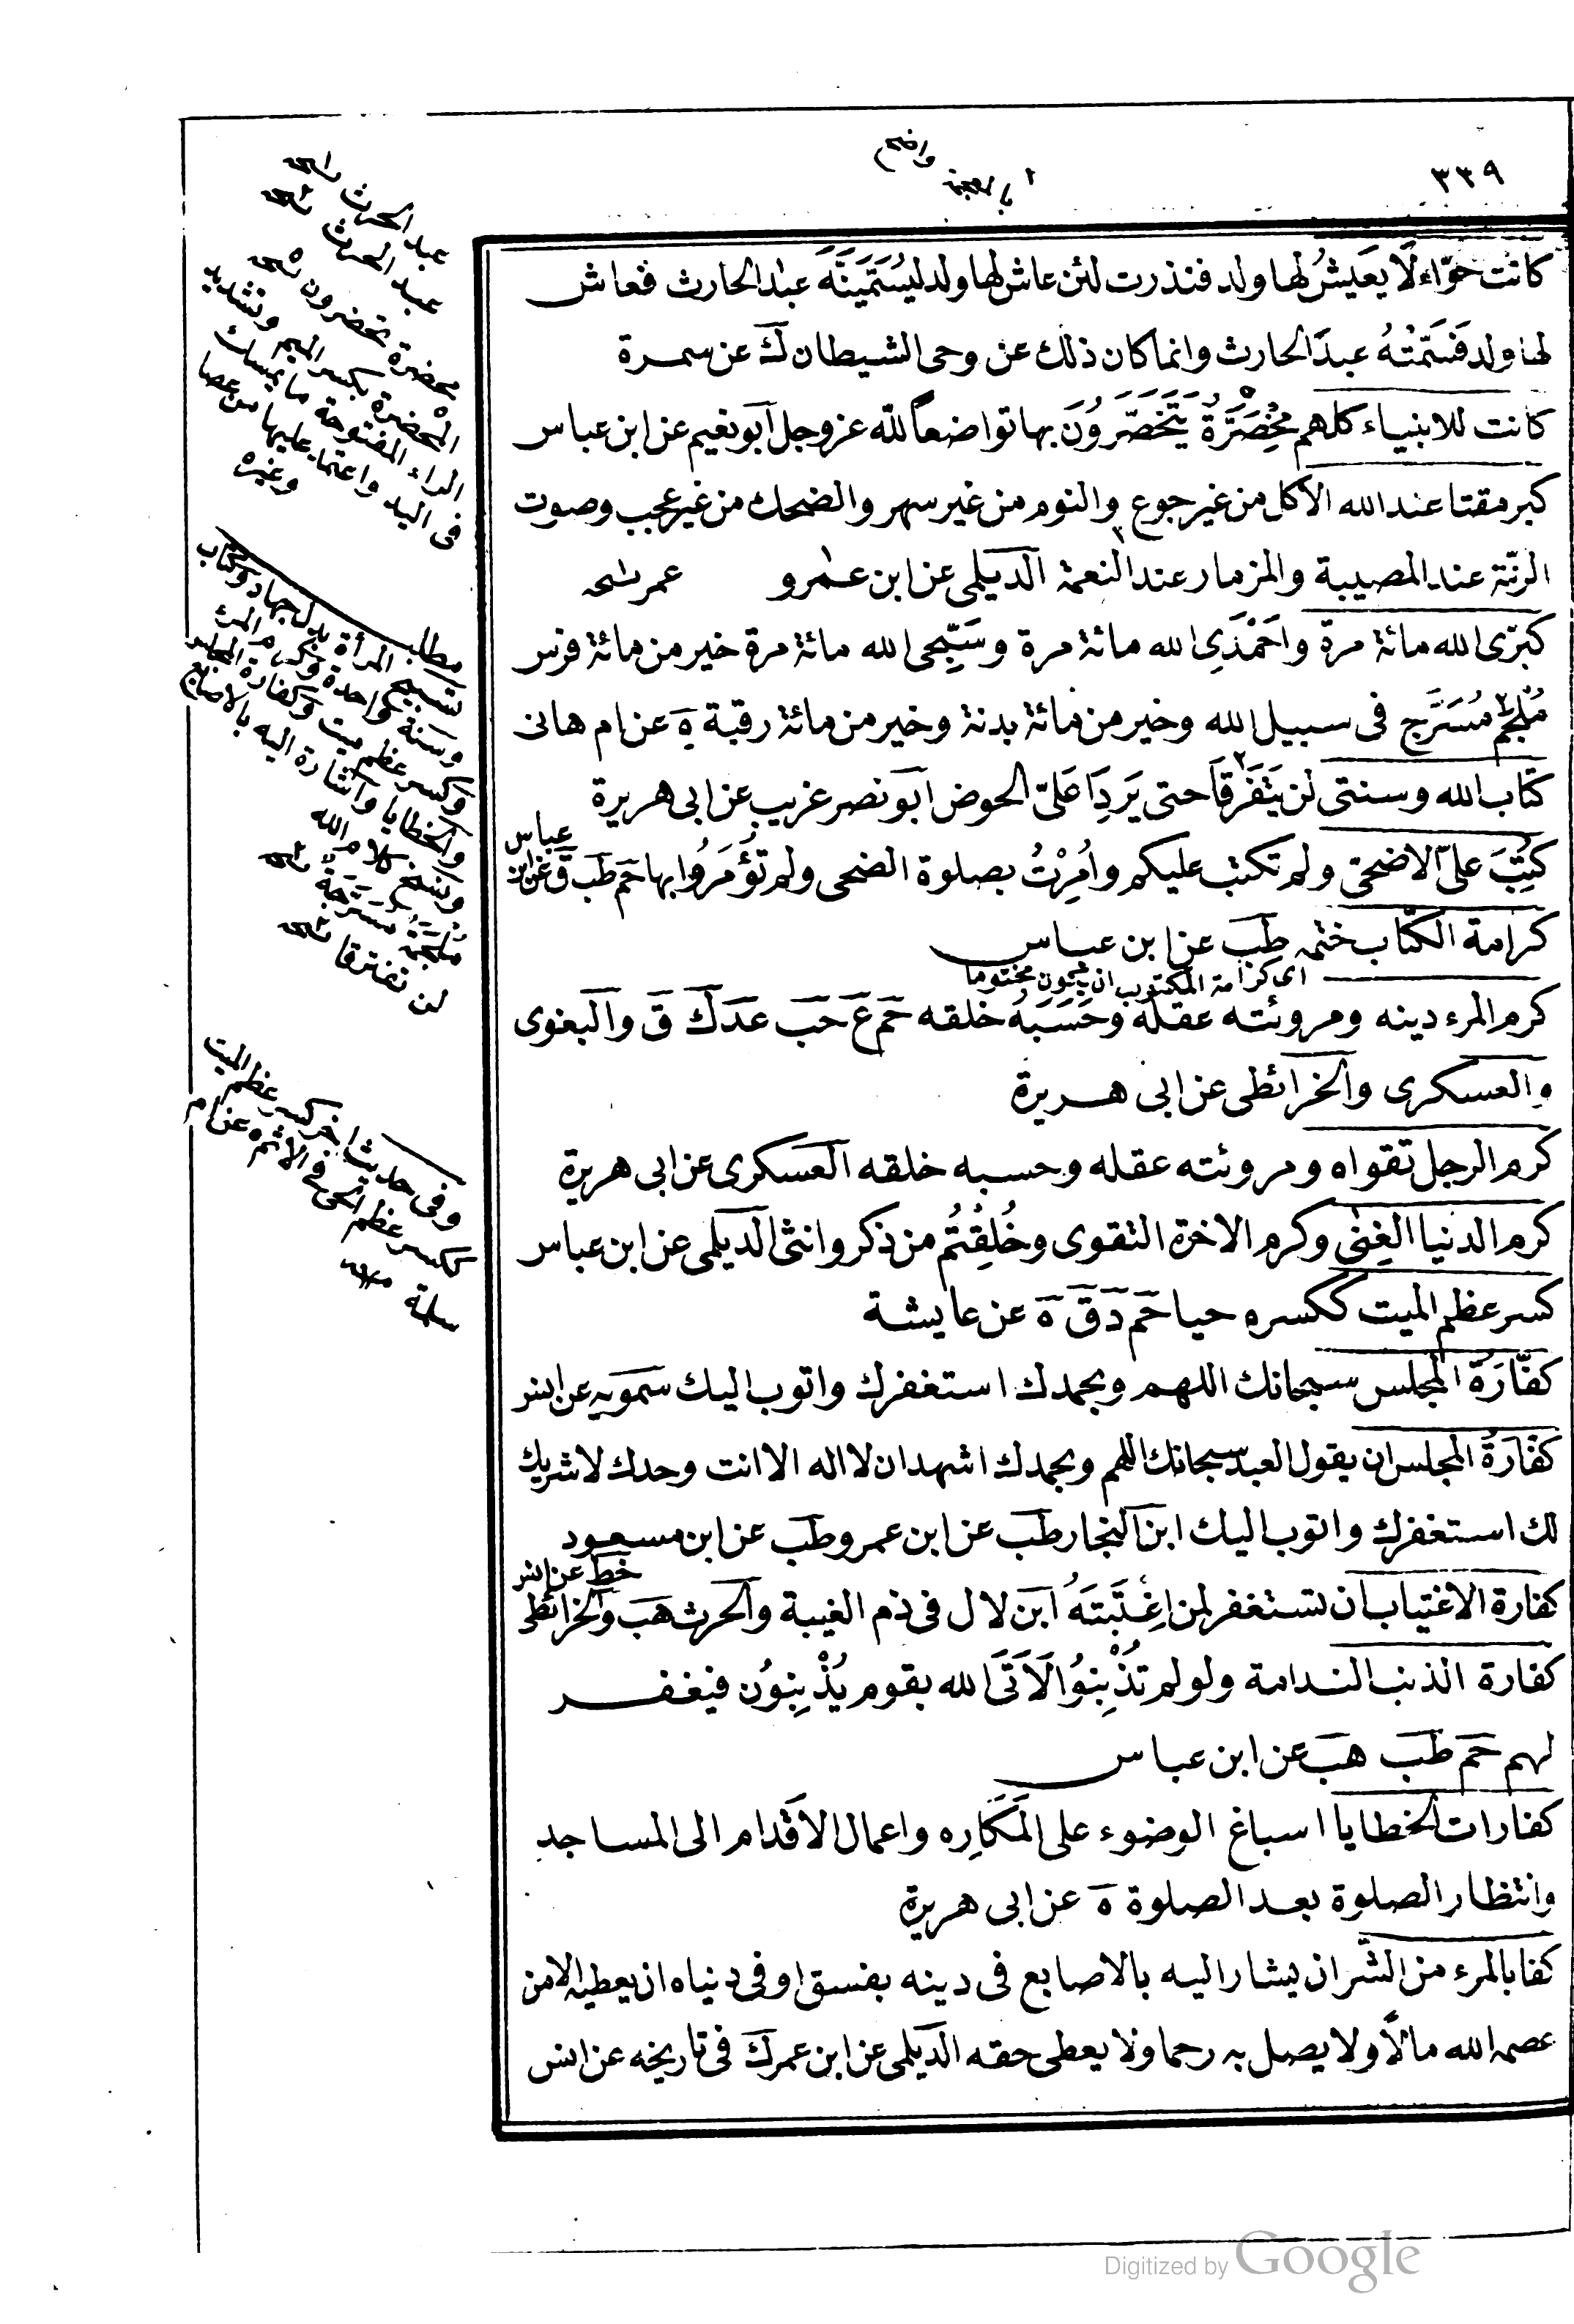 ٣٣٩
كانت حوّاء لَا يعَيشُ لها ولد فنذرت لئن عاش لها ولد ليُسَمِّيَنَّهَ عبد الحارث فعاش
لها ولد فَسَمَّتْهُ عبدَ الحارث وانما كان ذلك عن وحى الشيطان كَ عن سمرة
كانت للانبياء كلهم مِخْصَرَّةُ يَتَخَصَّرُونَ بها تواضعاً لله عز وجل ابو نعيم عن ابن عباس
كبر مقتا عند الله الاكل من غير جوع والنوم من غير سهر والضحك من غير عجب وصوت
الرنّة عند المصيبة والمزمار عند النعمة الديلمى عن ابن عمرو عمر نسخه
كبّرى الله مائة مرة واحَمْدَىِ الله مائة مرة وسَبِّحى الله مائة مرة خير من مائة فرس
مُلْجَمٍ مُسَرَّج فى سبيل الله وخير من مائة بدنة وخير من مائة رقبة هَ عن ام هانى
كتاب الله وسنتى لن يَتَفَرَقَا حتى يَرِدَا عَلىّ الحوض ابو نصر غريب عن ابى هريرة
كُتِبَ علىّ الاضحى ولم تكتب عليكم وامُرِتُ بصلوة الضحى ولم تُؤْمَرُوا بها حم طب ق عن ابن عباس
كرامة الكتاب ختمه طب عن ابن عباس
اى كرامة المكتوب ان يكون مختوما
كرم المرء دينه ومروئته عقله وحَسَبَهُ خلقه حم ع حب عد ك ق والبغوى
والعسكرى والخرائطى عن ابى هريرة
كرم الرجل تقواه ومروئته عقله وحسبه خلقه العسكرى عن ابى هريرة
كرم الدنيا الغِنٰى وكرم الاخرة التقوى وخُلِقُتُم من ذكر وانثى الديلمى عن ابن عباس
كسر عظم الميت ككسره حيا حم د ق ه عن عايشة
كفّارَةُ المجلس سبحانك اللهم وبحمدك استغفرك واتوب اليك سمويه عن انس
كفارَةُ المجلس ان يقول العبد سبحانك اللهم وبحمدك اشهد ان لا اله الا انت وحدك لا شريك
لك استغفرك واتوب اليك ابن النجار طب عن ابن عمرو طب عن ابن مسعود
كفارة الاغتياب ان تستغفر لمن اغِْتَبتَهُ ابن لال فى ذم الغيبة والحرث هب والخرائطى خط عن انس
كفارة الذنب الندامة ولو لم تُذْنِبوُا لَاَتَى الله بقوم يُذْنِبوُن فيغفر
لهم حم طب هب عن ابن عباس
كفارات الخطايا اسباغ الوضوء على المَكَارِه واعمال الاقدام الى المساجد
وانتظار الصلوة بعد الصلوة ه عن ابى هريرة
كفا بالمرء من الشّر ان يشار اليه بالاصابع فى دينه بفسق او فى دنياه ان يعطيه الا من
عصمه الله مالًا ولا يصل به رحما ولا يعطى حقه الديلمى عن ابن عمر ك فى تاريخه عن انس
عبد الحرث نسخه
عبد الحرث نسخه
مخصرة تخصرون نسخه
المخصرة بكسر الميم وتشديد
الراء المفتوحة ما يمسك
فى اليد واعتماد عليها من عصا
وغيره
مطلب
تسبيح المرأة بدل جهاد وكتاب
وسنة واحدة وكرم المرء
وكسر عظم ميت وكفارة المجلس
والخطايا واشارة اليه بالاصابع
ملجمة مسرّجة نسخه
لن تفترقا نسخه
وفى حديث اخر كسر عظم الميت
ككسر عظم الحى فى الاثم ه عن ام
سلمة
Digitized by Google